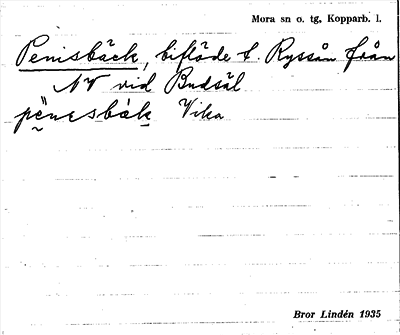 Mora sn o. tg, Kopparb. l.
Penisbäck, biflöde t. Ryssån från
NV vid Budsäl
pẹ̈nesbäk Vika
Bror Lindén 1935